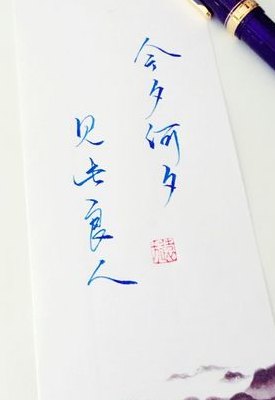 今夕河夕
见此良人